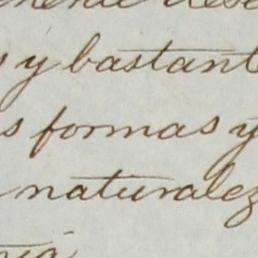 y bastante
s formas y
naturalez